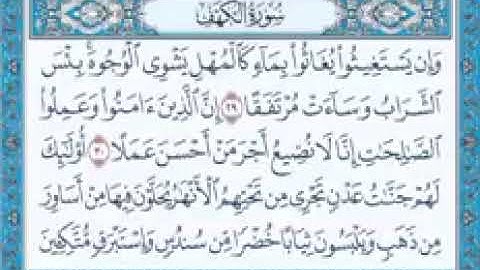 سُورَةُ الكَهْفِ
وَإِن يَسْتَغِيثُوا۟ يُغَاثُوا۟ بِمَآءٍ كَٱلْمُهْلِ يَشْوِى ٱلْوُجُوهَ ۚ بِئْسَ
ٱلشَّرَابُ وَسَآءَتْ مُرْتَفَقًا ٢٩ إِنَّ ٱلَّذِينَ ءَامَنُوا۟ وَعَمِلُوا۟
ٱلصَّـٰلِحَـٰتِ إِنَّا لَا نُضِيعُ أَجْرَ مَنْ أَحْسَنَ عَمَلًا ٣٠ أُو۟لَـٰٓئِكَ
لَهُمْ جَنَّـٰتُ عَدْنٍ تَجْرِى مِن تَحْتِهِمُ ٱلْأَنْهَـٰرُ يُحَلَّوْنَ فِيهَا مِنْ أَسَاوِرَ
مِن ذَهَبٍ وَيَلْبَسُونَ ثِيَابًا خُضْرًا مِّن سُندُسٍ وَإِسْتَبْرَقٍ مُّتَّكِـِٔينَ